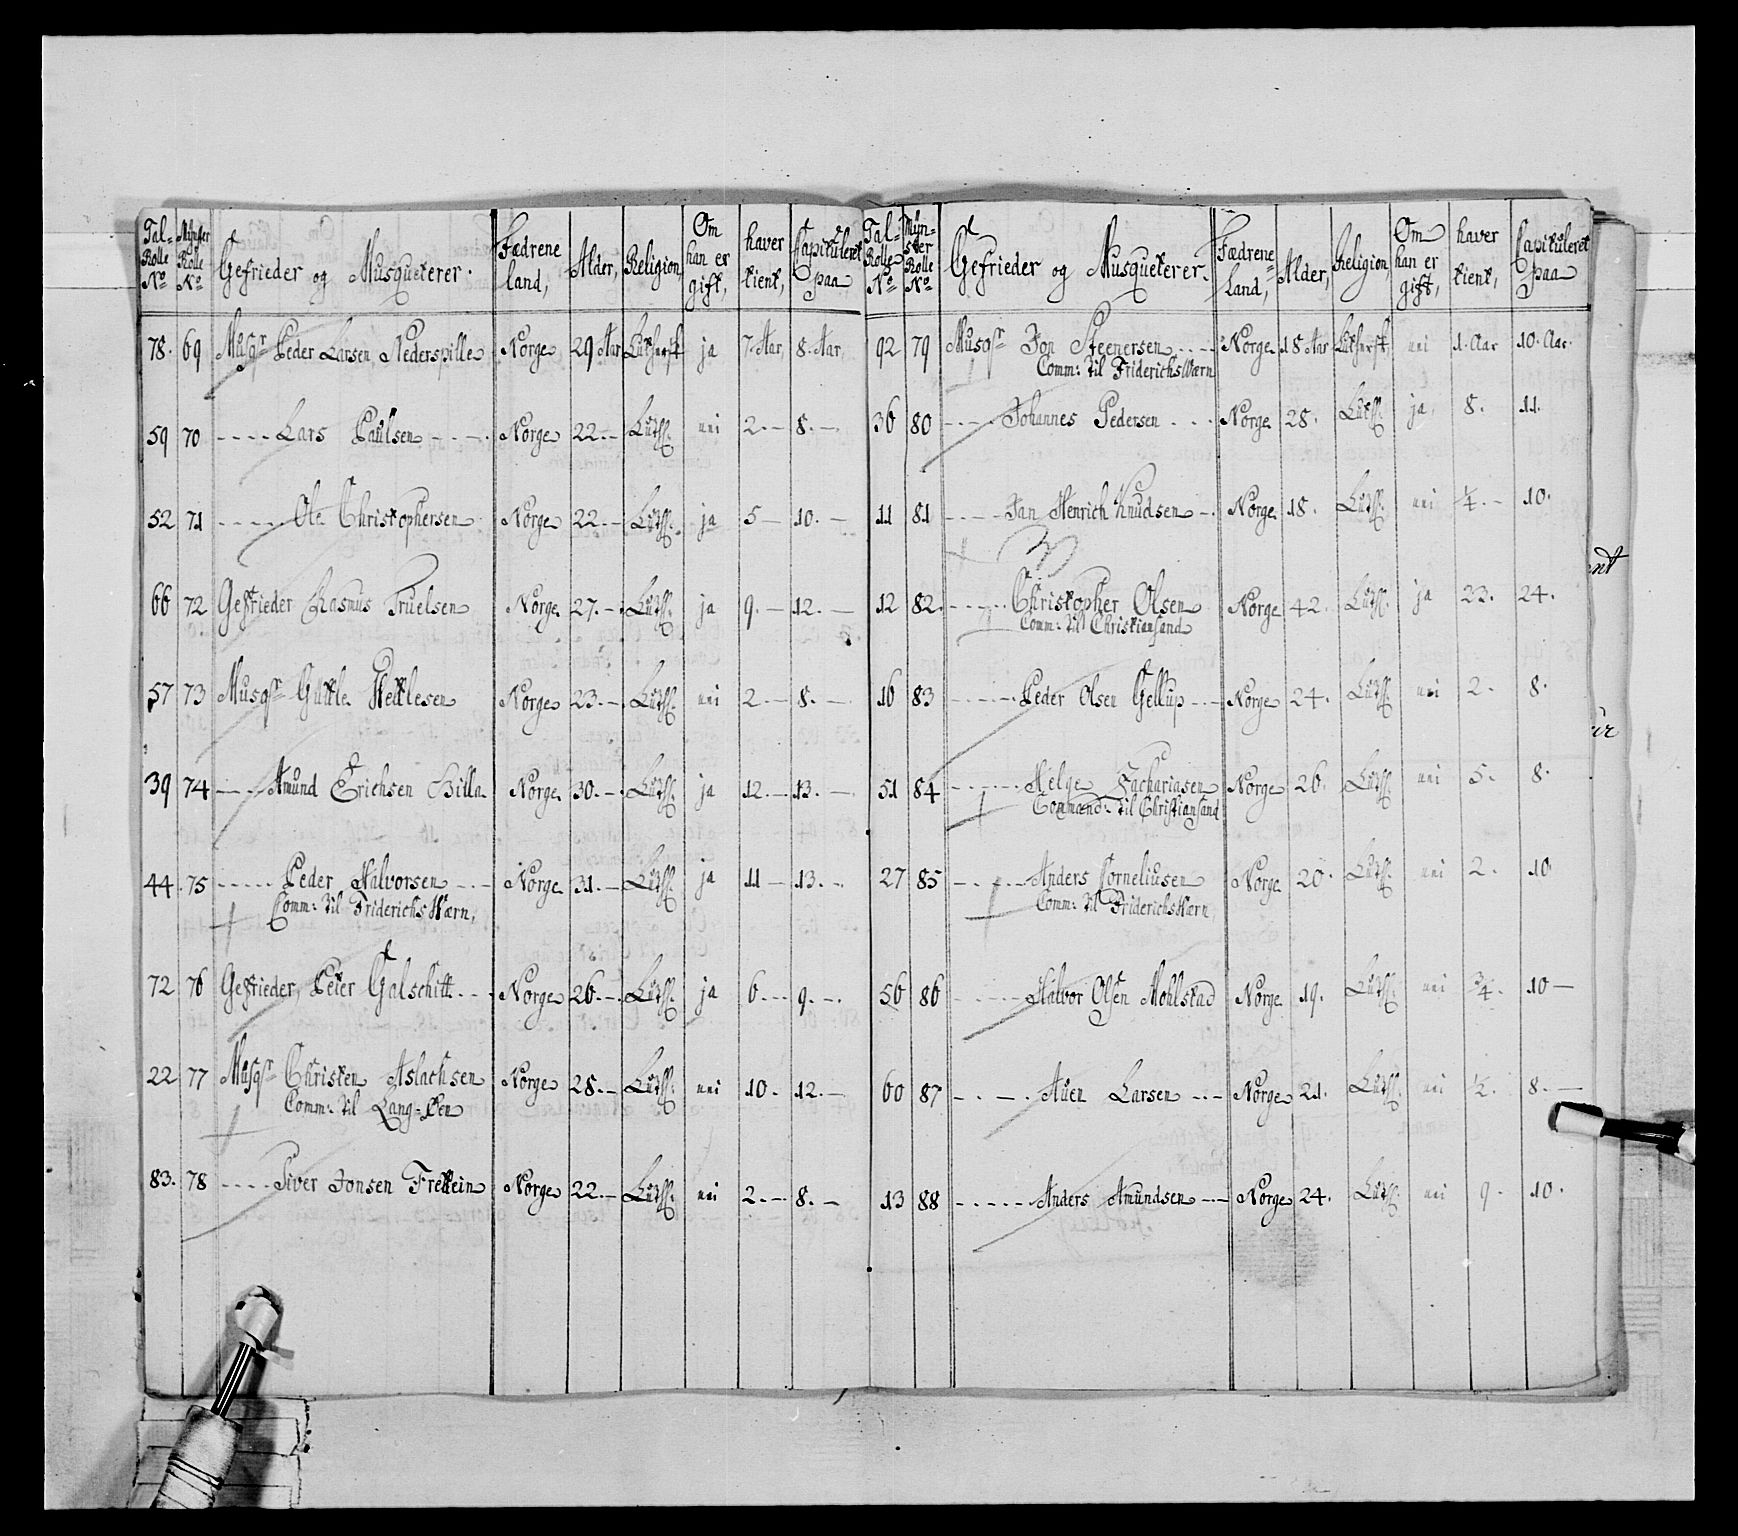 Tal-Rolle No | Mynster Rolle No | Gefrieder og Musqueterer. | Fædrene land, | Alder, | Religion, | Om han er gift, | haver tient, | Capituleret paa
78. 69 Musqr Peder Larsen Nederspille Norge 29 Aar Luthersk ja 7. Aar, 8. Aar,
59 70 - - - - Lars Paulsen - - - Norge 22. - Luth: nei 2. - 8. -
52 71 - - - - Ole Christophersen Norge 22. - Luth: ja 5 - 10. -
66 72 Gefrieder Rasmus Truelsen Norge 27. - Luth: ja 9. - 12. -
57 73 Musqr Guttle Hetlesen Norge 23. - Luth: nei 2. - 8. -
39 74 - - - Amund Erichsen Billa Norge 30. - Luth: ja 12. - 13. -
44. 75 - - - - - Peder Halvorsen - - - Norge 31. - Luth: ja 11 - 13. -
Comm: til Friderichs Værn,
72 76 Gefrieder, Peter Galschitt - - - Norge 26. - Luth: ja 6 - - 9. -
22 77 Musqr Christen Aslachsen Norge 28. - Luth: nei 10. 12. -
Comm: til Lang-Øen
83. 78 - - - - Siver Jonsen Frettein Norge 22. - Luth: nei 2. - 8. -
Tal-Rolle No | Mynster Rolle No | Gefrieder og Musqueterer. | Fædrene land, | Alder, | Religion, | Om han er gift, | haver tient, | Capituleret paa
92 79 Musqr Jon Steenersen - - - Norge 18 Aar Luthersk, nei 1. Aar 10. Aar.
Comm: til Friderichs Værn
36 80 - - - - Johannes Pedersen - - - Norge 28. Luth: ja, 8. 11.
11 81 - - - - Jan Henrich Knudsen - Norge 18. Luth: nei ¼. - 10.
12 82. - - - - Christopher Olsen Norge 42. Luth: ja 23. 24.
Comm: til Christiansand
16 83 - - - - - Peder Olsen Gellup - - - Norge 24. Luth: nei 2. 8.
51 84 - - - - - Helge Zachariasen Norge 26. Luth: nei 5. 8.
Command: til Christiansand
27 85 - - - - Anders Corneliusen Norge 20. Luth: nei 2. 10
Comm: til Friderichs Værn
56 86 - - - - - Halvor Olsen Mohlstad Norge 19. Luth: nei ¾. 10 -
60 87 - - - - Auen Larsen - - - Norge 21. Luth: nei ½. 8. -
13 88 - - - - - Anders Amundsen - - - Norge 24. Luth: nei 9. 10.